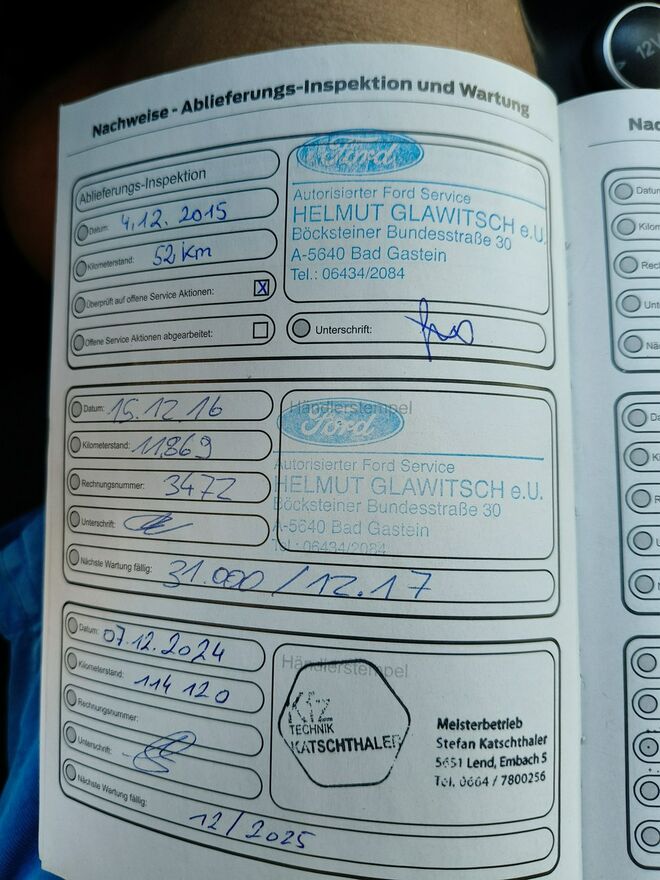 Nachweise - Ablieferungs-Inspektion und Wartung
Ablieferungs-Inspektion
Datum: 4.12. 2015
Kilometerstand: 52 Km
Überprüft auf offene Service Aktionen: X
Offene Service Aktionen abgearbeitet:
Ford
Autorisierter Ford Service
HELMUT GLAWITSCH e.U.
Böcksteiner Bundesstraße 30
A-5640 Bad Gastein
Tel.: 06434/2084
Unterschrift:
Datum: 15.12.16
Kilometerstand: 11869
Rechnungsnummer: 3472
Unterschrift:
Nächste Wartung fällig: 31.000 / 12.17
Händlerstempel
Ford
Autorisierter Ford Service
HELMUT GLAWITSCH e.U.
Böcksteiner Bundesstraße 30
A-5640 Bad Gastein
Tel.: 06434/2084
Datum: 07.12.2024
Kilometerstand: 114 120
Rechnungsnummer:
Unterschrift:
Nächste Wartung fällig:
12/2025
Händlerstempel
Kfz
TECHNIK
KATSCHTHALER
Meisterbetrieb
Stefan Katschthaler
5651 Lend, Embach 5
Tel. 0664 / 7800256
12V